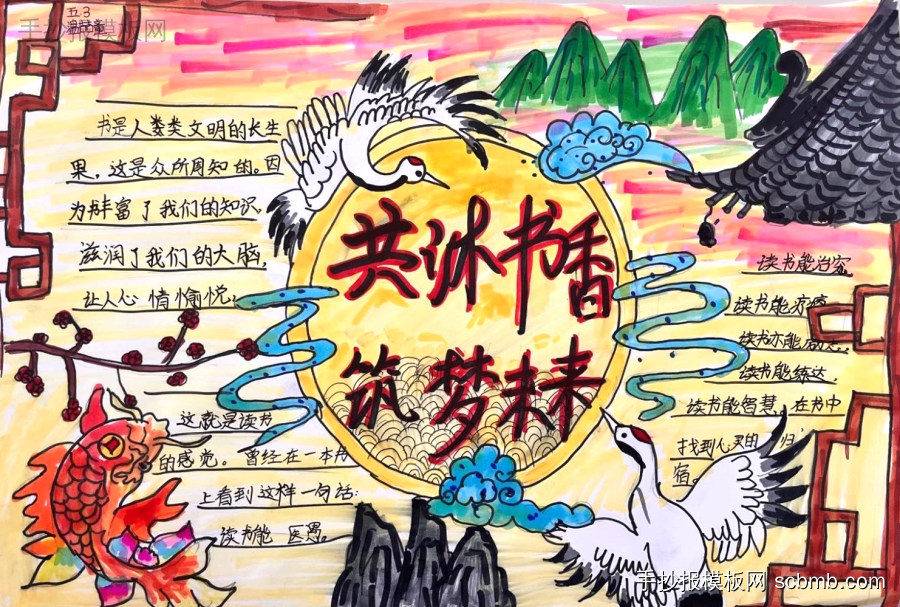 五.3
手抄报模板网
书是人类类文明的长生
果,这是众所周知的。因
为书丰富了我们的知识,
滋润了我们的大脑,
让人心情愉悦。
共沐书香
筑梦未来
这就是读书
的感觉。曾经在一本书
上看到这样一句话:
读书能医愚。
读书能治穷,
读书能疗
读书亦能
读书能练达,
读书能智慧,在书中
找到心灵的归
宿。
手抄报模板网 scbmb.com